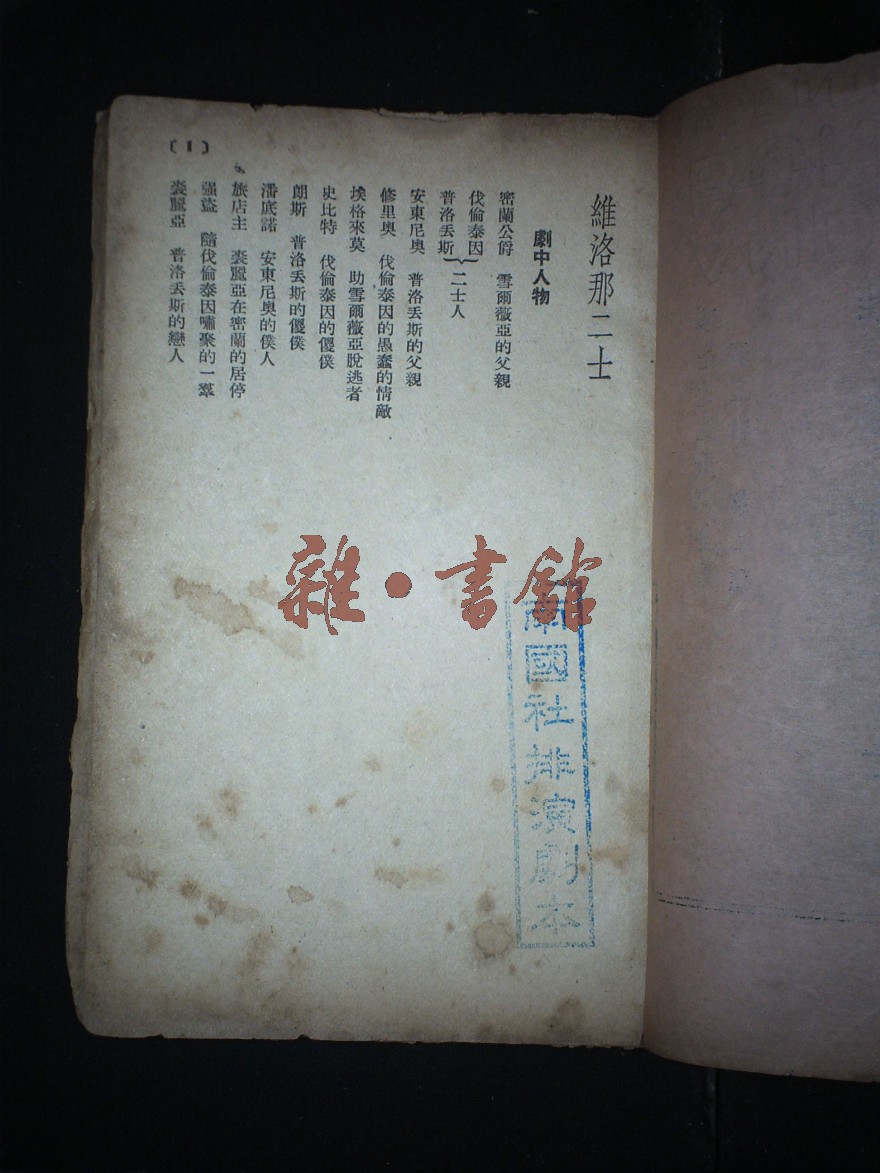 維洛那二士
劇中人物
密蘭公爵　雪爾薇亞的父親
伐倫泰因
普洛丟斯｝二士人
安東尼奧　普洛丟斯的父親
修里奧　伐倫泰因的愚蠢的情敵
埃格來莫　助雪爾薇亞脫逃者
史比特　伐倫泰因的傻僕
朗斯　普洛丟斯的傻僕
潘底諾　安東尼奧的僕人
旅店主　裘麗亞在密蘭的居停
强盜　隨伐倫泰因嘯聚的一羣
裘麗亞　普洛丟斯的戀人
(1)
雜·書館
南國社排演劇本